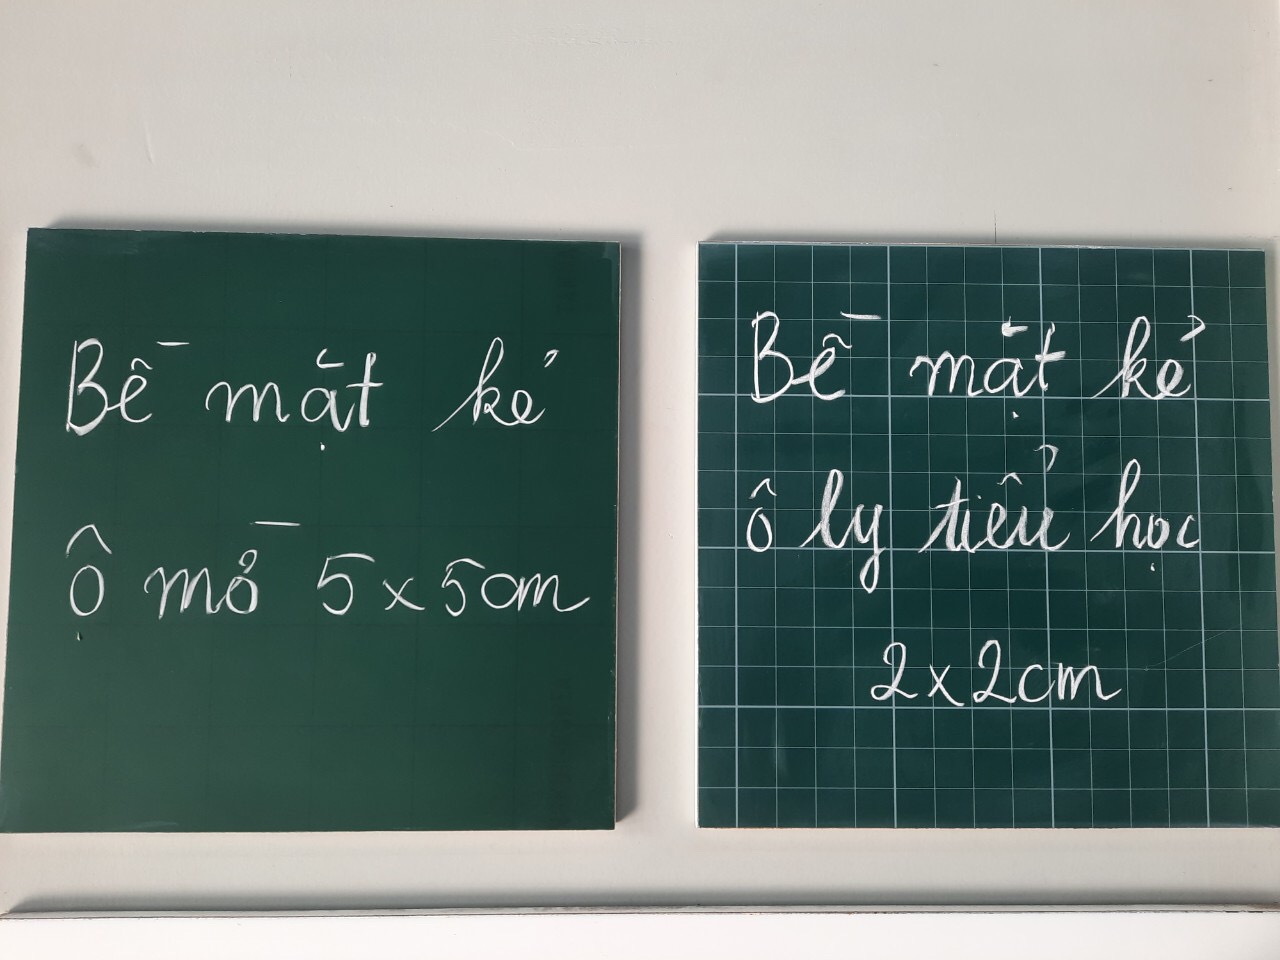 Bề mặt kẻ
Ô mờ 5x5cm
Bề mặt kẻ
ô ly tiểu học
2x2cm